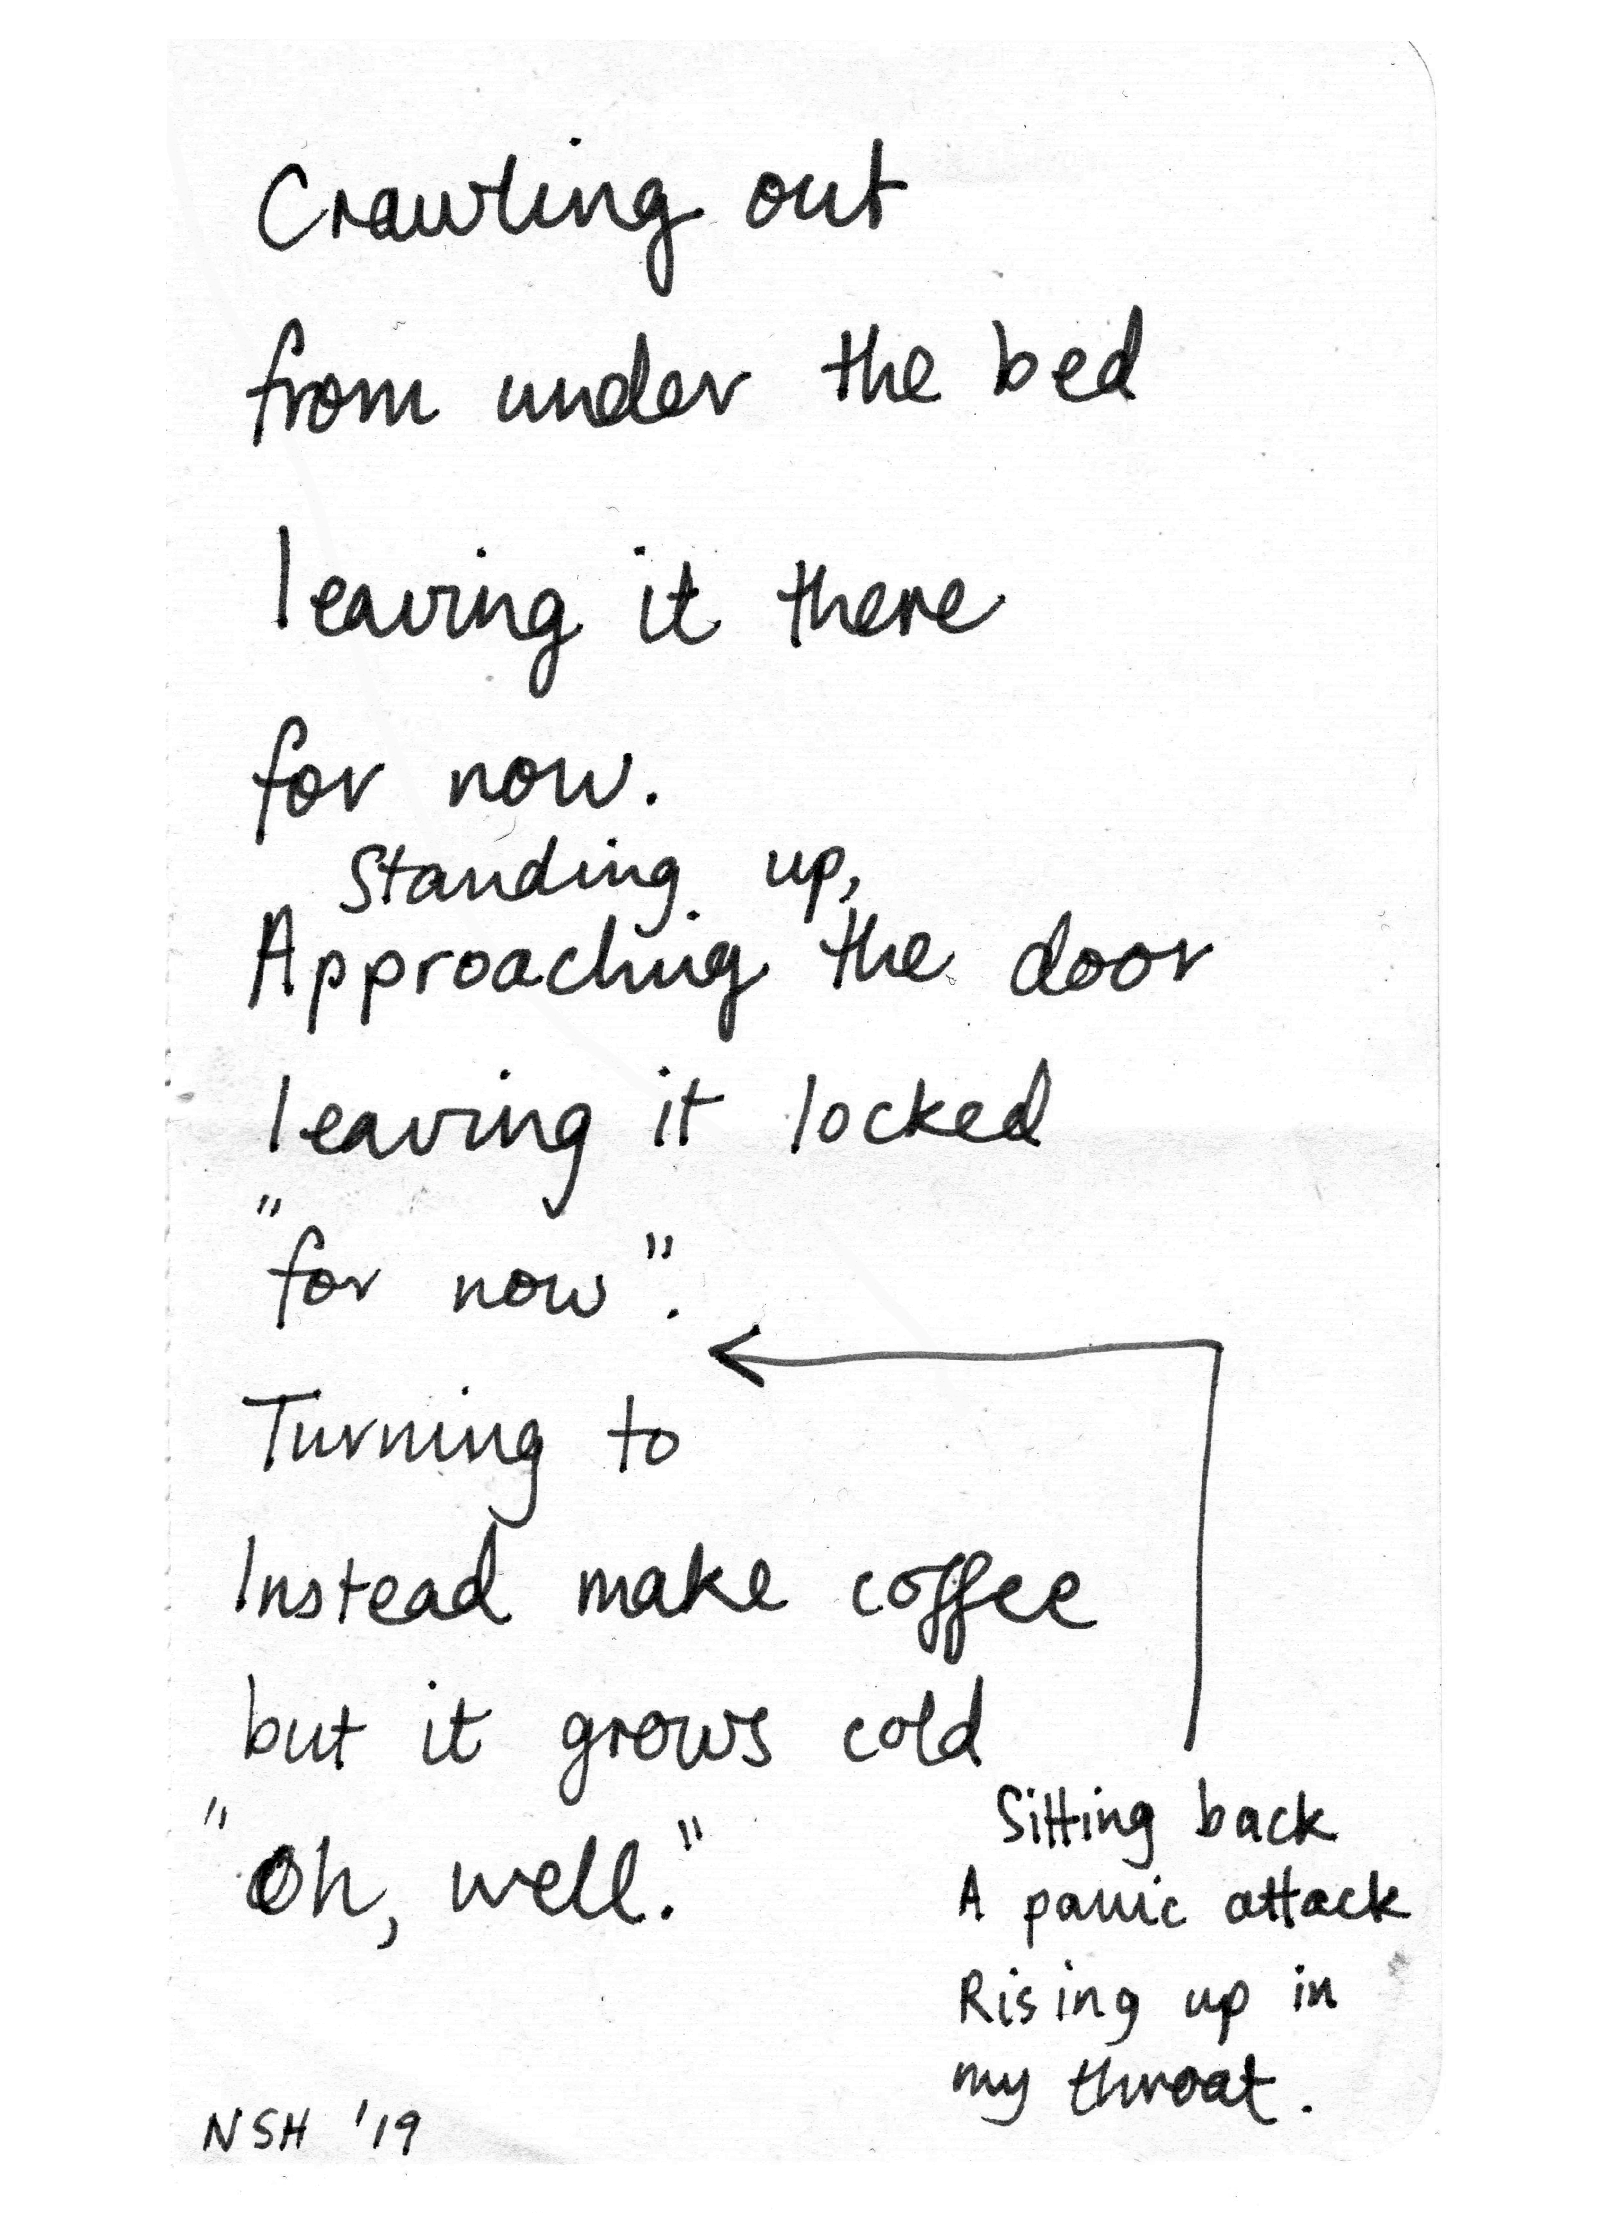 Crawling out
from under the bed
leaving it there
for now.
Standing up,
Approaching the door
leaving it locked
"for now".
Turning to
Instead make coffee
but it grows cold
"Oh, well."
Sitting back
A panic attack
Rising up in
my throat.
NSH '19